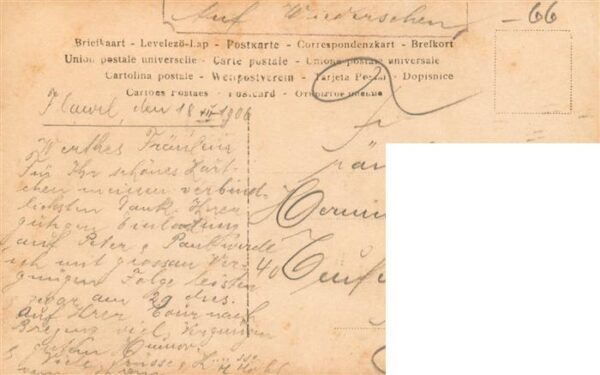 Auf Wiedersehen
-66
Briefkaart - Levelező-Lap - Postkarte - Correspondenzkart - Brefkort
Union postale universelle - Carte postale - Unione postale universale
Cartolina postale - Weltpostverein - Tarjeta Postal - Dopisnice
Cartões Postaes - Postcard - Открытое письмо
Flawil, den 18 1906
Werthes Fräulein
Für Ihr schönes Kärt-
chen meinen verbind-
lichsten Dank. Ihrer
gütigen Einladung
auf Peter & Paul werde
ich mit grossem Ver-
gnügen Folge leisten
am 29 dies.
Auf Ihrer Tour nach
viel Vergnügen
Humor.
Viele Grüsse
Fräu
Hermin
Teuf